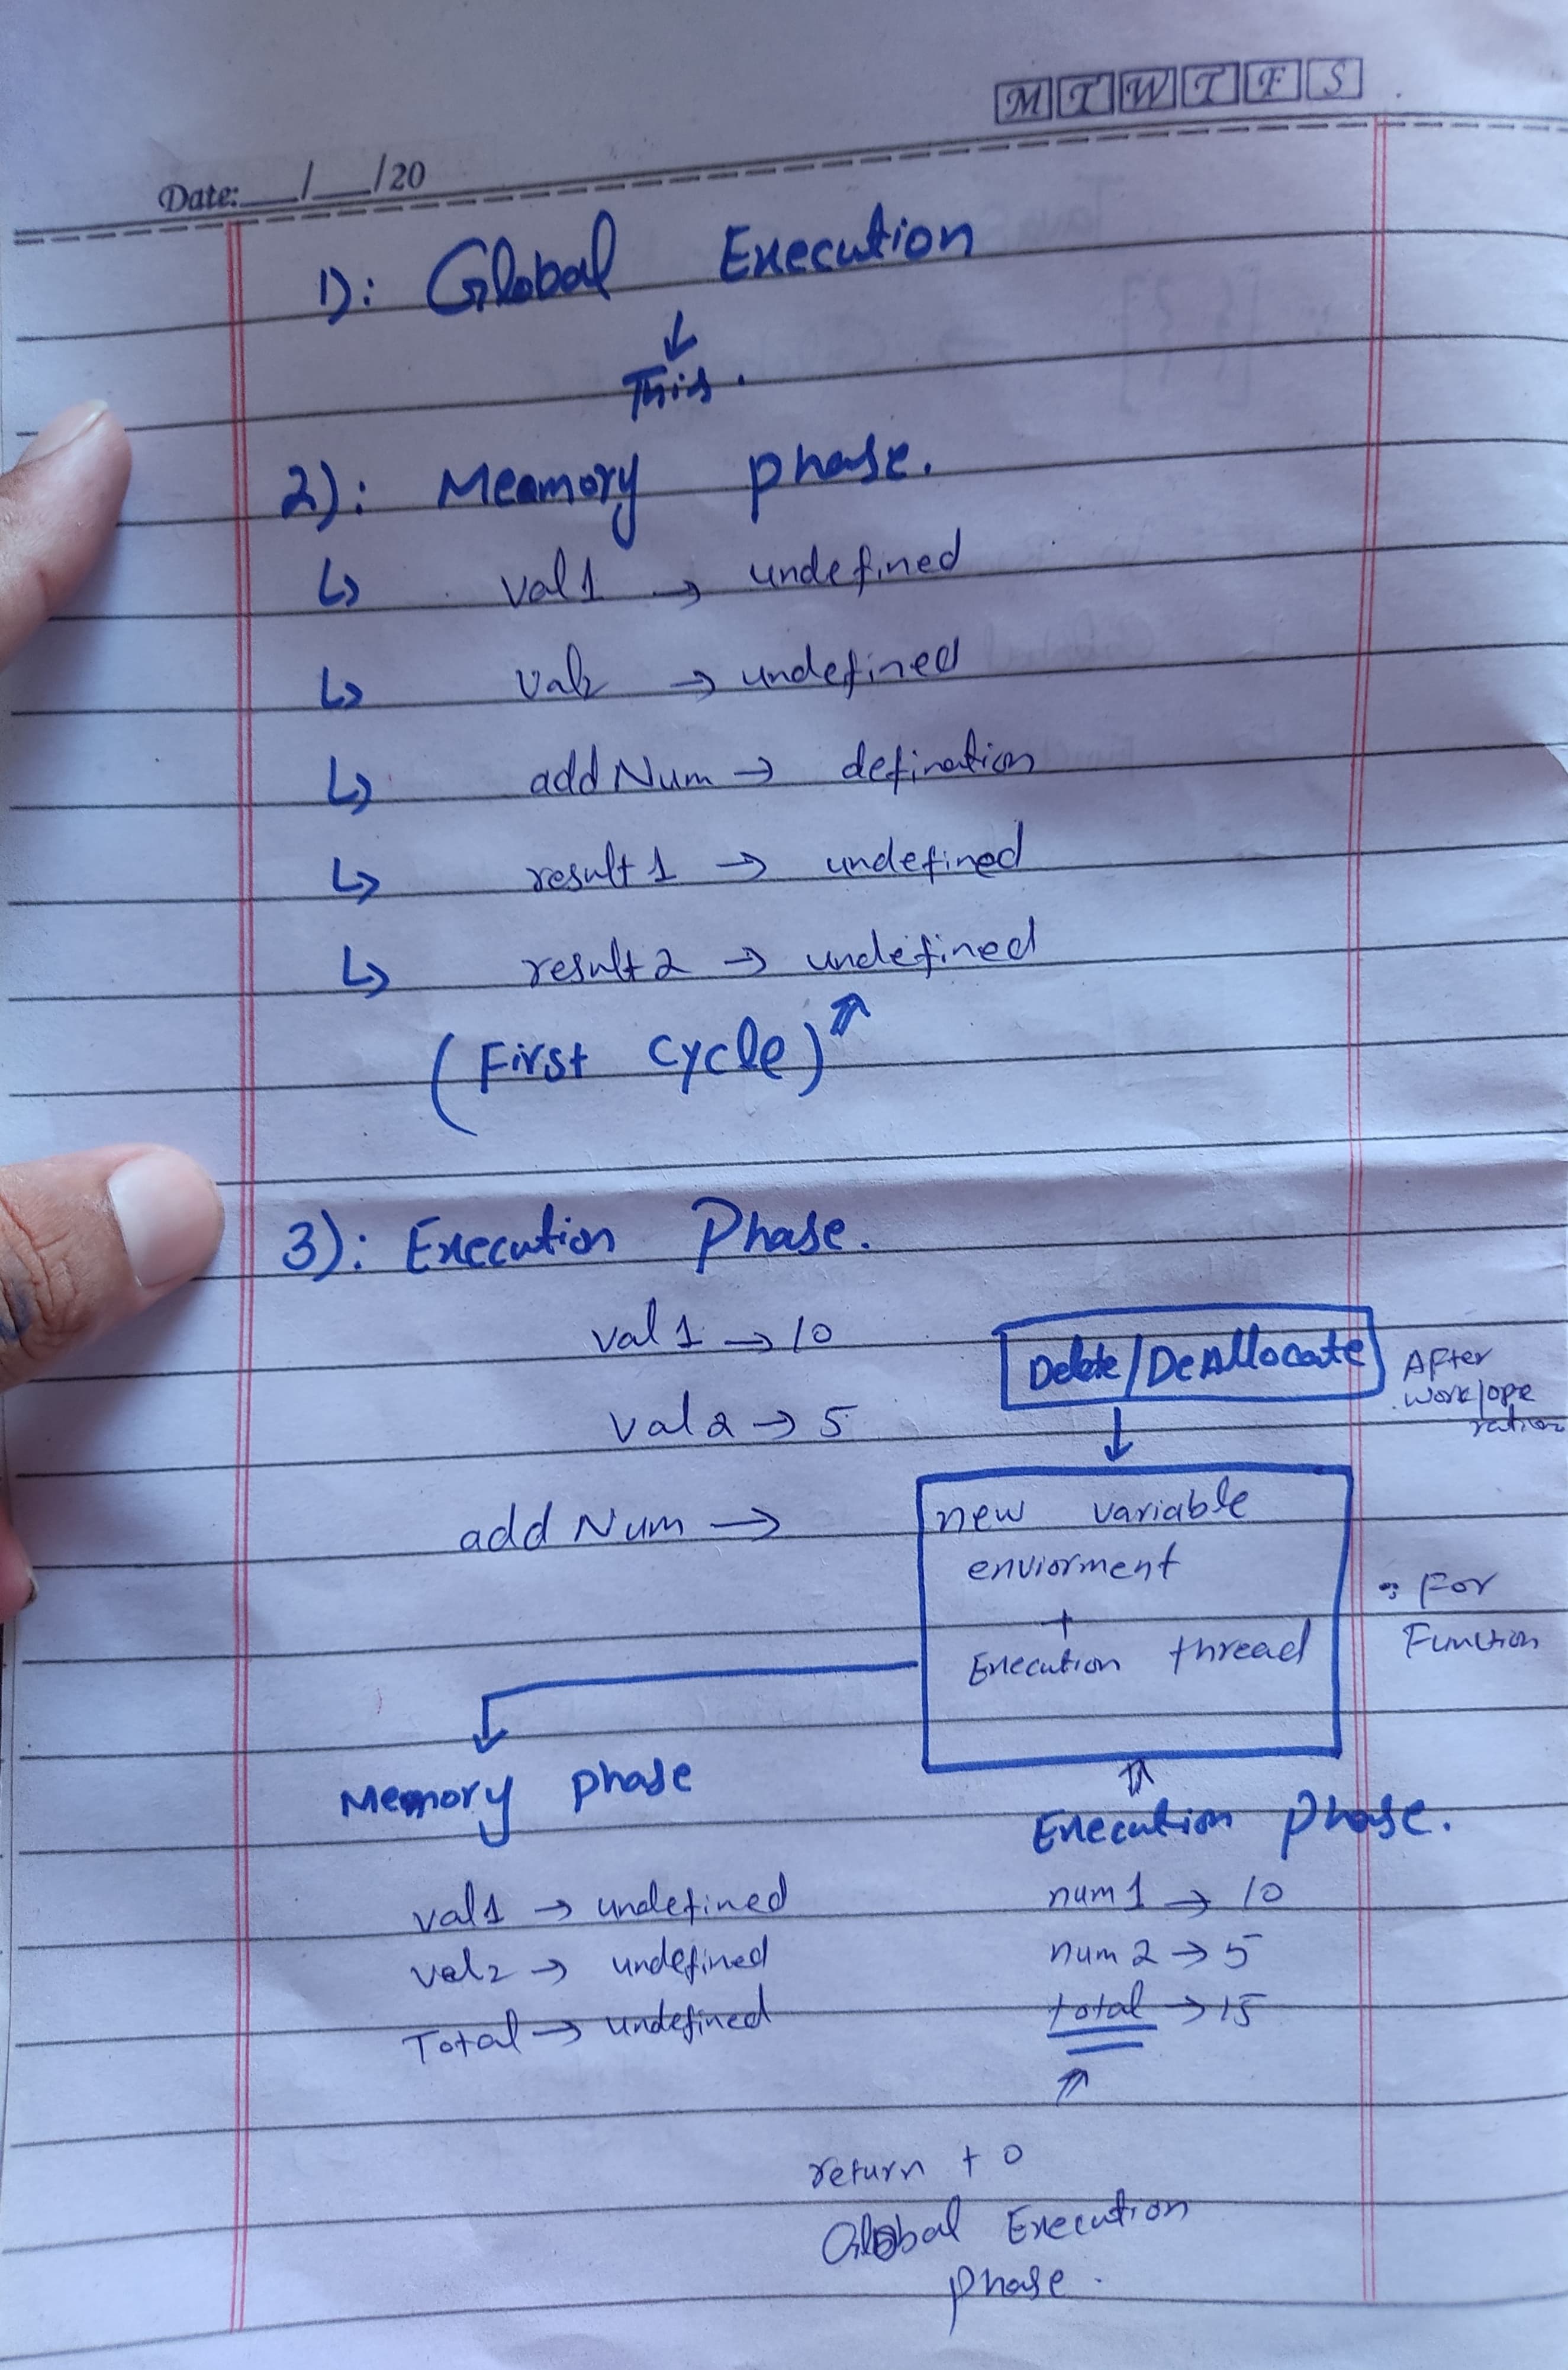 M T W T F S
Date:___/___/20
1): Global Execution
↓
This.
2): Meamory phase.
↳ val1 → undefined
↳ val2 → undefined
↳ addNum → defination
↳ result1 → undefined
↳ result2 → undefined
(First cycle)
3): Execution Phase.
val1 → 10
Delete/DeAllocate
After
work/ope
ration
val2 → 5
addNum →
new variable
enviorment
+
Execution thread
: For
Function
Memory phase
val1 → undefined
val2 → undefined
Total → undefined
Execution phase.
num1 → 10
num2 → 5
total → 15
return to
Global Execution
phase.